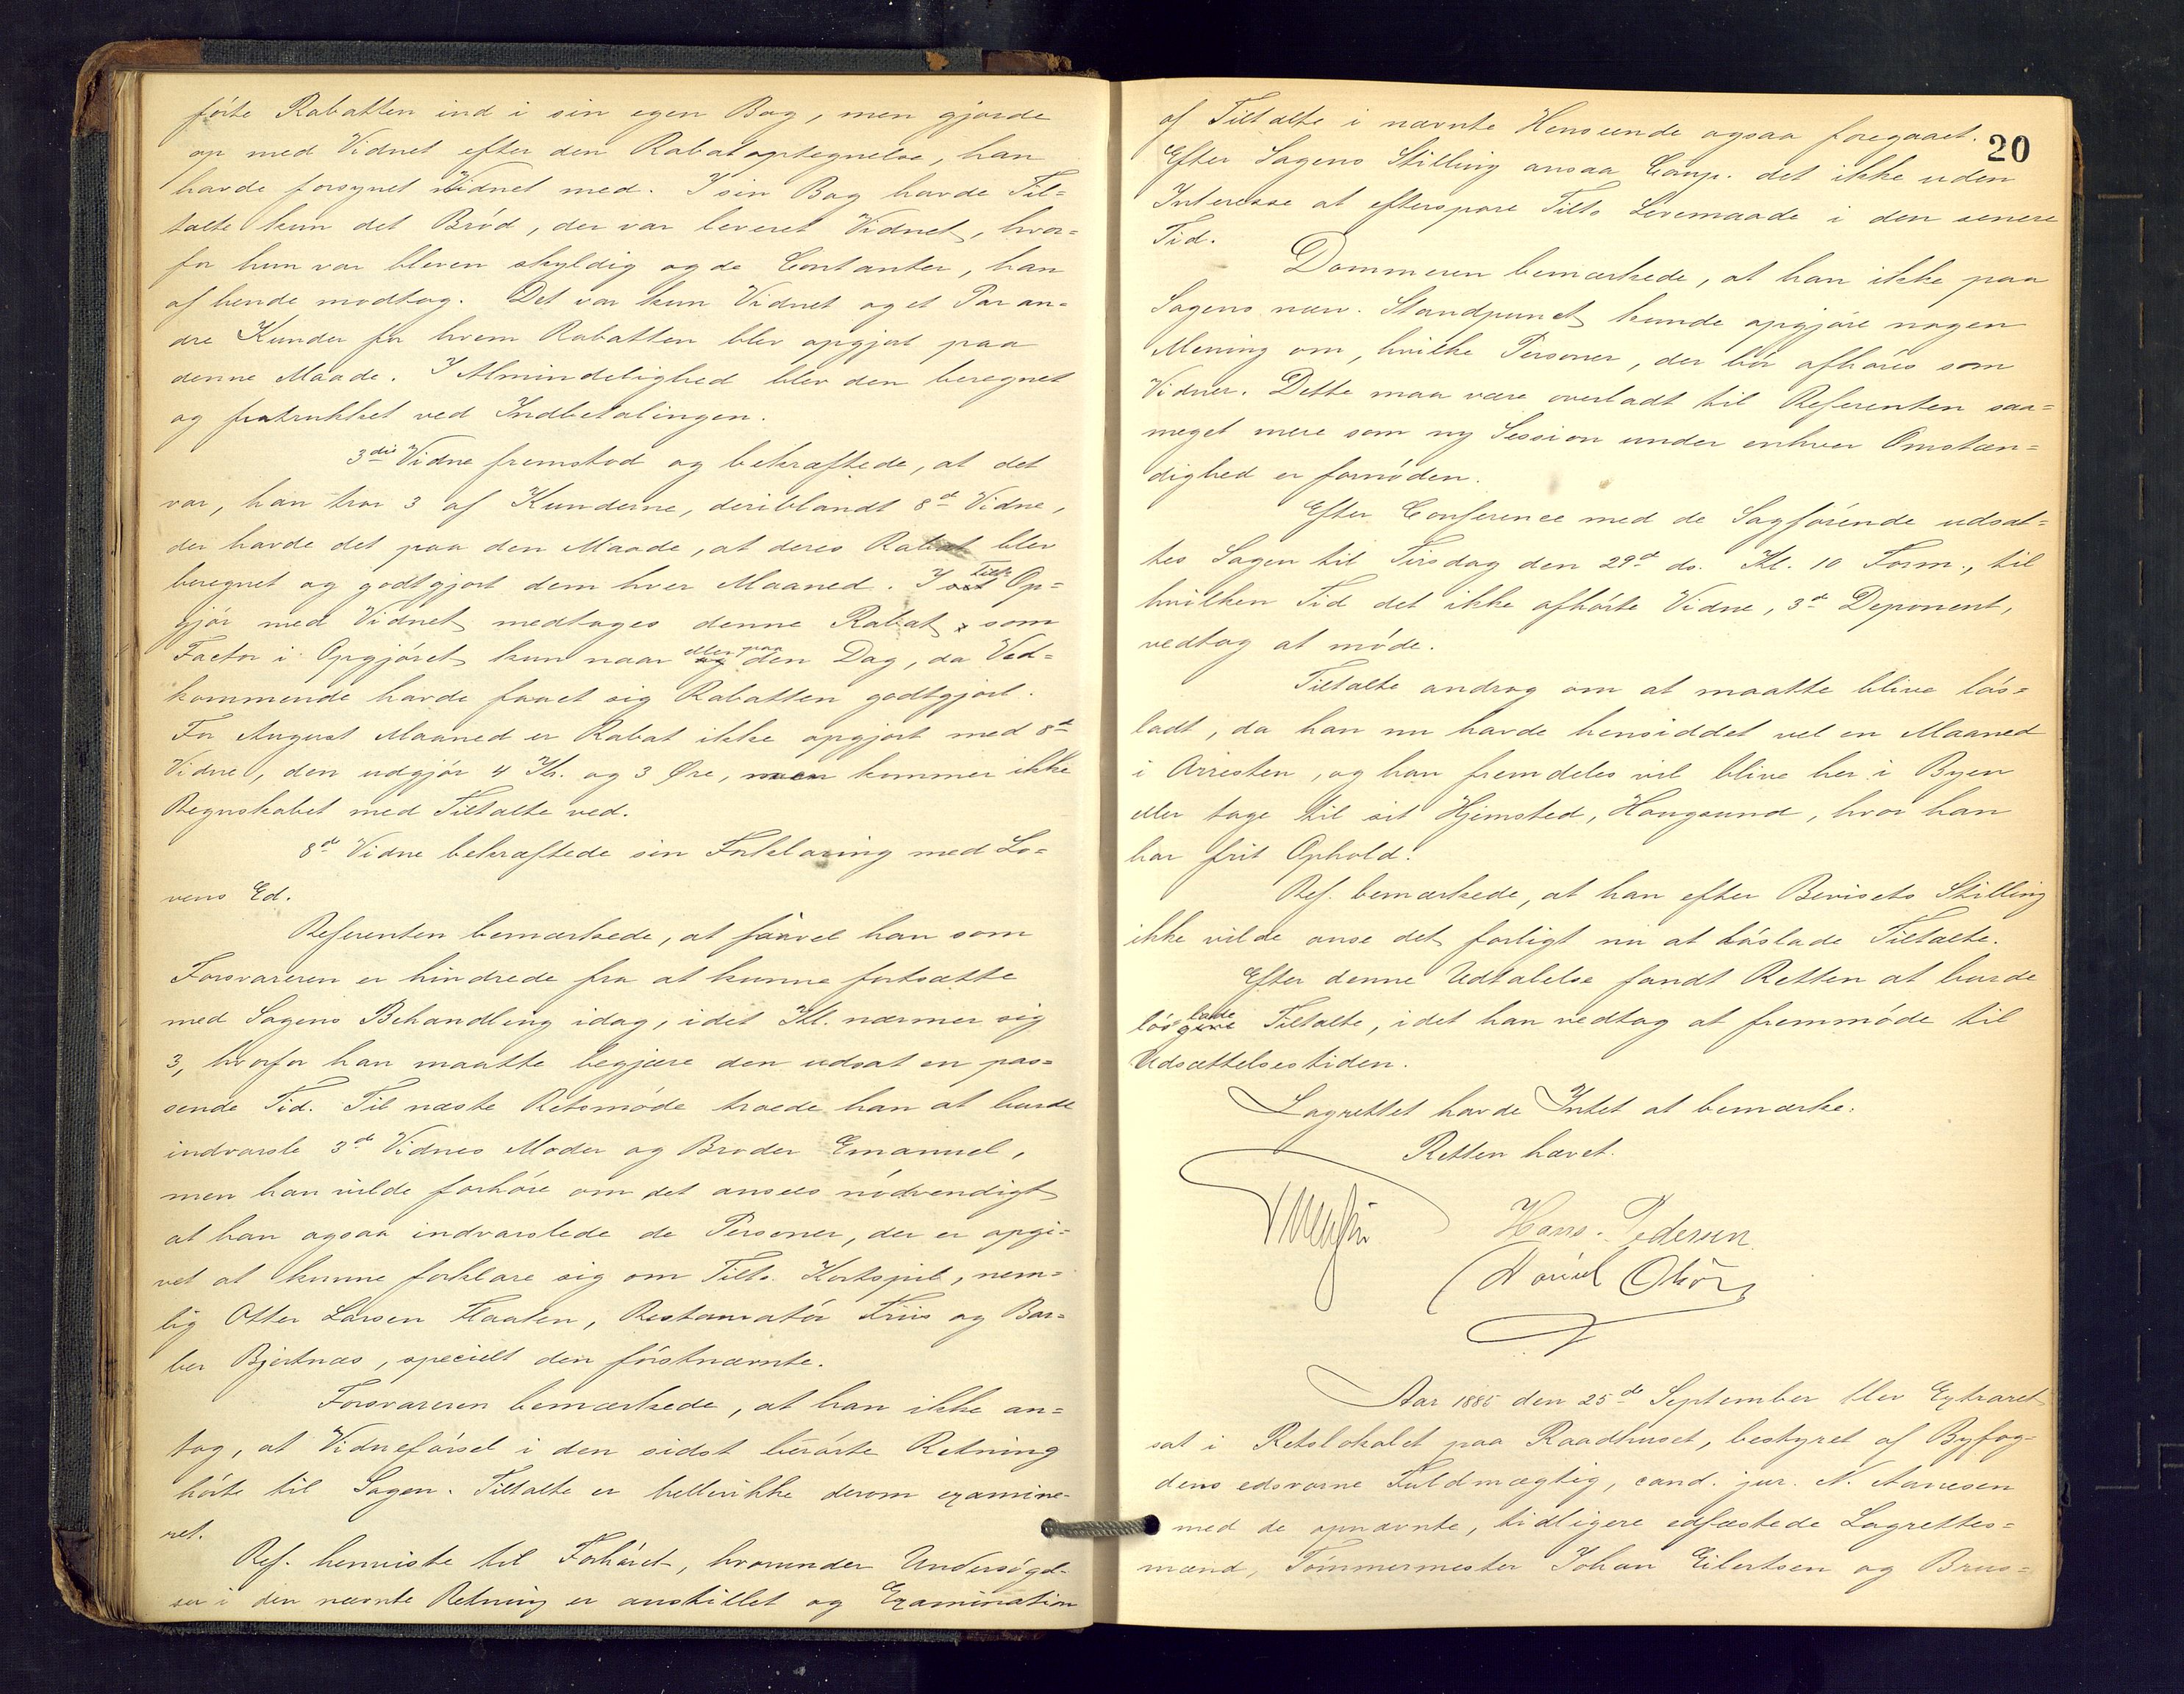 førte Rabatten ind i sin egen Bog, men gjorde
op med Vidnet efter den Rabatoptegnelse, han
havde forsynet Vidnet med. I sin Bog havde Til=
talte kun det Brød, der var leveret Vidnet, hvor=
for hun var bleven skyldig og de Contanter, han
af hende modtog. Det var kun Vidnet og et Par an=
dre Kunder for hvem Rabatten blev opgjort paa
denne Maade. I Almindelighed blev den beregnet
og fratrukket ved Indbetalingen.
3die Vidne fremstod og bekræftede, at det
var, han tror 3 af Kunderne, deriblandt 8d Vidne,
der havde det paa den Maade, at deres Rabat blev
beregnet og godtgjort dem hver Maaned. I Tilts Op=
gjør med Vidnet medtoges denne Rabat som
Factor i Opgjøret kun naar eller paa den Dag, da Ved=
kommende havde faaet sig Rabatten godtgjort.
For August Maaned er Rabat ikke opgjort med 8d
Vidne, den udgjør 4 Kr. og 3 Øre, men kommer ikke
Regnskabet med Tiltalte ved.
8de Vidne bekræftede sin Forklaring med Lo=
vens Ed.
Referenten bemærkede, at saavel han som
Forsvareren er hindrede fra at kunne fortsætte
med Sagens Behandling idag, idet Kl. nærmer sig
3, hvorfor han maatte begjære den udsat en pas=
sende Tid. Til næste Retsmøde troede han at burde
indvarsle 3d Vidnes Moder og Broder Emanuel,
men han vilde forhøre om det ansees nødvendigt
at han ogsaa indvarslede de Personer, der er opgi=
vet at kunne forklare sig om Tilts. Kortspil, nem=
lig Otter Larsen Flaaten, Restauratør Friis og Bar=
ber Bjertnæs, specielt den førstnævnte.
Forsvareren bemærkede, at han ikke an=
tog, at Vidneførsel i den sidst berørte Retning
hørte til Sagen. Tiltalte er hellerikke derom examine=
ret.
Ref. henviste til Forhøret, hvorunder Undersøgel=
ser i den nævnte Retning er anstillet og Examination
20
af Tiltalte i nævnte Henseende ogsaa foregaaet.
Efter Sagens Stilling ansaa Comp. det ikke uden
Interesse at efterspore Tilts Levemaade i den senere
Tid.
Dommeren bemærkede, at han ikke paa
Sagens nuv. Standpunct kunde opgjøre nogen
Mening om, hvilke Personer, der bør afhøres som
Vidner. Dette maa være overladt til Referenten saa=
meget mere som ny Session under enhver Omstæn=
dighed er fornøden.
Efter Conference med de Sagførende udsat=
tes Sagen til Tirsdag den 29d ds. Kl. 10 Form., til
hvilken Tid det ikke afhørte Vidne, 3d Deponent,
vedtog at møde.
Tiltalte androg om at maatte blive løs=
ladt, da han nu havde hensiddet vel en Maaned
i Arresten, og han fremdeles vil blive her i Byen
eller tage til sit Hjemsted, Haugsund, hvor han
har frit Ophold.
Ref. bemærkede, at han efter Bevisets Stilling
ikke vilde anse det farligt nu at løslade Tiltalte.
Efter denne Udtalelse fandt Retten at burde
løslade Tiltalte, idet han vedtog at fremmøde til
Udsættelsestiden.
Lagrettet havde Intet at bemærke.
Retten hævet.
Hans. Pedersen
Aar 1885 den 25de September blev Extraret
sat i Retslokalet paa Raadhuset, bestyret af Byfog=
dens edsvorne Fuldmægtig, cand. jur. N. Aanesen
med de opnævnte, tidligere edfæstede Lagrettes=
mænd, Tømmermester Johan Eilertsen og Brus=